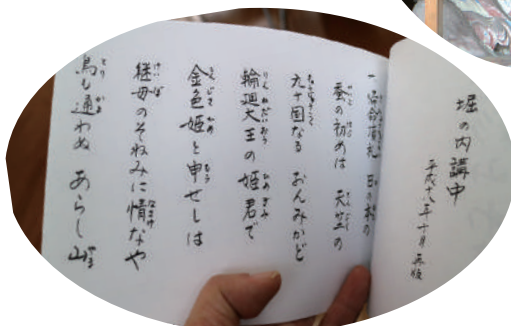 堀の内講中
平成十八年十月 再版
一 帰命頂礼 日の本の
蚕の初めは 天竺の
九十国なる おんみかど
輪廻大王の姫君で
金色姫と申せしは
継母のそねみに情なや
鳥も通わぬ あらし山